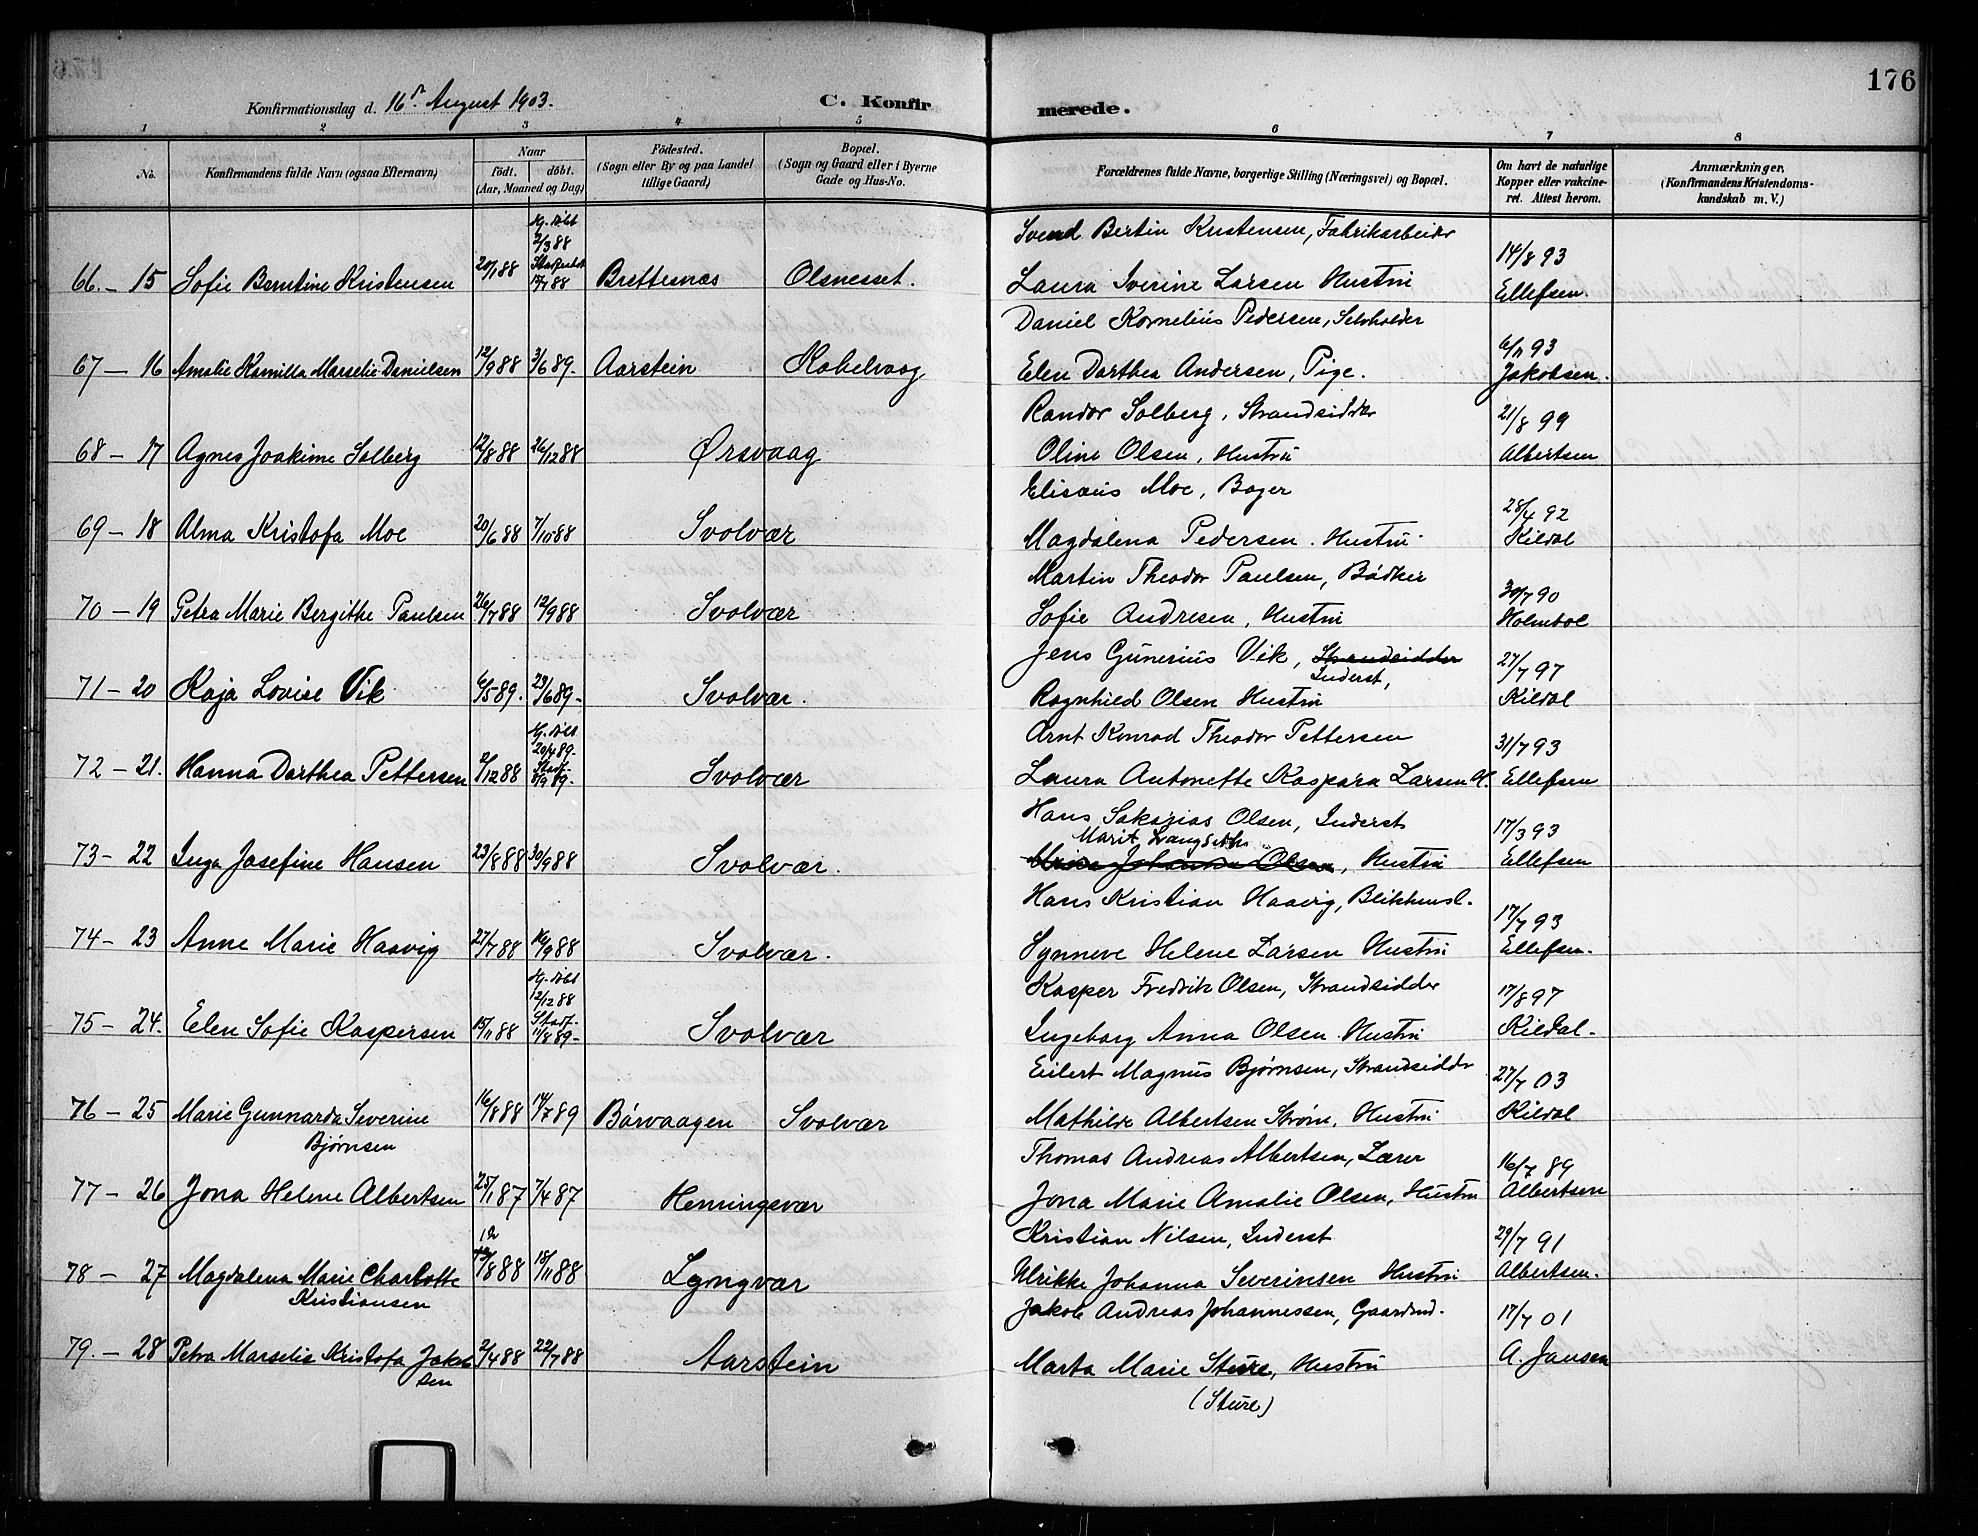 176
Konfirmationsdag d. 16de August 1903.
C. Konfirmerede.
1 2 3 4 5 6 7 8
No.
Konfirmandens fulde Navn (ogsaa Efternavn)
Naar
födt. döbt.
(Aar, Maaned og Dag)
Födested.
(Sogn eller By og paa Landet
tillige Gaard)
Bopæl.
(Sogn og Gaard eller i Byerne
Gade og Hus-No.
Forældrenes fulde Navne, borgerlige Stilling (Næringsvei) og Bopæl.
Om havt de naturlige
Kopper eller vakcine-
ret. Attest herom.
Anmærkninger.
(Konfirmandens Kristendoms-
kundskab m. V.)
Hj. döbt
2/3 88
Svend Bertin Kristensen, Fabrikarbeider
14/8 93
66. – 15 Sofie Berntine Kristensen 20/1 88 Brettesnæs Olsnesset. Laura Iverine Larsen Hustru Ellefsen.
Daniel Kornelius Pedersen, Selvholder
93
67 – 16 Amalie Kamilla Marselie Danielsen 12/9 88 3/6 89. Aarstein Kabelvaag Elen Dorthea Andersen, Pige. Jakobsen.
Randor Solberg, Strandsidder
21/8 99
68 – 17 Agnes Joakime Solberg 12/8 88 26/12 88 Ørsvaag Oline Olsen, Hustru Albertsen
Elisæus Moe, Bager
28/4 92
69 – 18 Alma Kristofa Moe 20/6 88 7/10 88 Svolvær Magdalena Pedersen. Hustru. Kildal
Martin Theodor Paulsen, Bödker
30/7 90
70 – 19 Petra Marie Bergithe Paulsen 26/7 88 12/9 88 Svolvær Sofie Andresen, Hustru Holmboe
Jens Gunerius Vik, Strandsidder
Inderst,
27/7 97
71 – 20 Kaja Lovise Vik 6/5 89. 23/6 89. Svolvær. Ragnhild Olsen Hustru Kildal
Hj. döbt
20/4 89.
Arnt Konrad Theodor Pettersen
31/7 93
72 – 21. Hanna Dorthea Pettersen 2/12 88 Stadf. 8/9 89. Svolvær Laura Antonette Kaspara Larsen H. Ellefsen
Hans Sakarias Olsen, Inderst
Marit Langseth
17/3 93
73 – 22 Inga Josefine Hansen 23/8 88 30/9 88 Svolvær. Johanna Olsen, Hustru Ellefsen
Hans Kristian Haavig, Blikkensl.
17/7 93
74 – 23 Anne Marie Haavig 27/7 88 16/9 88 Svolvær. Synneve Helene Larsen Hustru Ellefsen.
Hj. döbt
12/12 88
Kasper Fredrik Olsen, Strandsidder
17/8 97
75 – 24. Elen Sofie Kaspersen 15/11 88 Stadf. 11/8 89. Svolvær Ingeborg Anna Olsen. Hustru Kildal.
Eilert Magnus Bjørnsen, Strandsidder
27/7 03
76 – 25 Marie Gunnarda Severine 16/8 88 14/7 89 Børvaagen Svolvær Mathilde Albertsen Strøm, Hustru Kildal
Bjørnsen
Thomas Andreas Albertsen, Lærer
16/7 89
77 – 26 Jona Helene Albertsen 25/1 87 7/4 87 Henningsvær Jona Marie Amalie Olsen, Hustru Albertsen
Kristian Nilsen, Inderst
29/7 91
78 – 27 Magdalena Marie Charlotte 12/8 88 18/11 88 Lyngvær Ulrikke Johanna Severinsen Hustru Albertsen.
Kristiansen
Jakob Andreas Johannessen, Gaardmd.
17/7 01
79. – 28 Petra Marselie Kristofa Jakob 2/4 88 22/7 88 Aarstein Marta Marie Sture, Hustru A. Jansen
sen
(Sture)